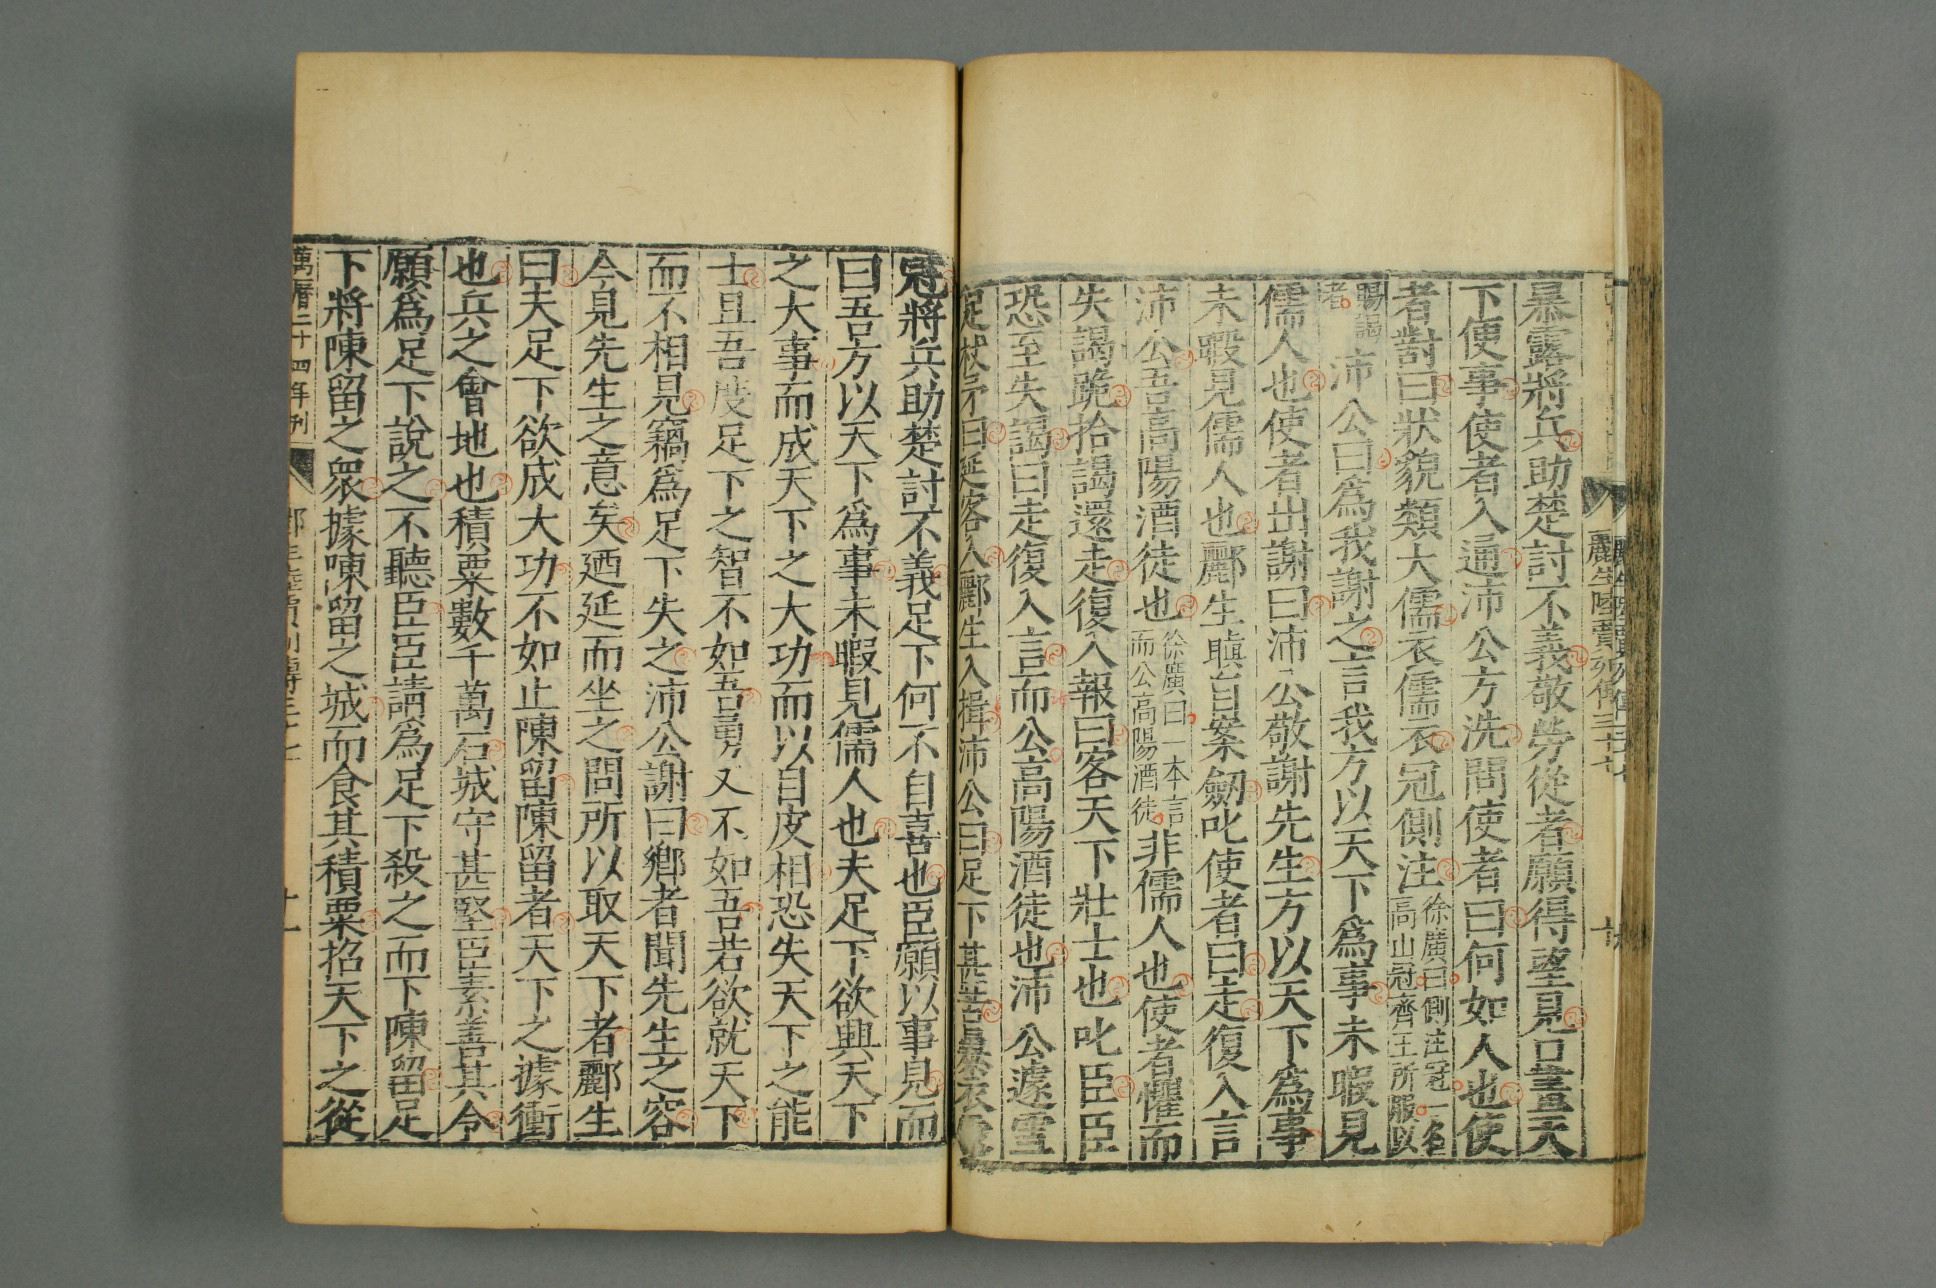 酈生陸賈列傳三十七
暴露將兵助楚討不義敬勞從者願得望見口畫天
下便事使者入通沛公方洗問使者曰何如人也使
者對曰狀貌類大儒衣儒衣冠側注徐廣曰側注冠一名高山冠齊王所服以
賜謁者沛公曰爲我謝之言我方以天下爲事未暇見
儒人也使者出謝曰沛公敬謝先生方以天下爲事
未暇見儒人也酈生瞋目案劒叱使者曰走復入言
沛公吾高陽酒徒也徐廣曰一本言而公高陽酒徒非儒人也使者懼而
失謁跪拾謁還走復入報曰客天下壯士也叱臣臣
恐至失謁曰走復入言而公高陽酒徒也沛公遽雪
足杖矛曰延客入酈生入揖沛公曰足下甚苦暴衣露
冠將兵助楚討不義足下何不自喜也臣願以事見而
曰吾方以天下爲事未暇見儒人也夫足下欲興天下
之大事而成天下之大功而以目皮相恐失天下之能
士且吾度足下之智不如吾勇又不如吾若欲就天下
而不相見竊爲足下失之沛公謝曰鄉者聞先生之容
今見先生之意矣廼延而坐之問所以取天下者酈生
曰夫足下欲成大功不如止陳留陳留者天下之據衝
也兵之會地也積粟數千萬石城守甚堅臣素善其令
願爲足下說之不聽臣臣請爲足下殺之而下陳留足
下將陳留之衆據陳留之城而食其積粟招天下之從
萬曆二十四年刊
十一